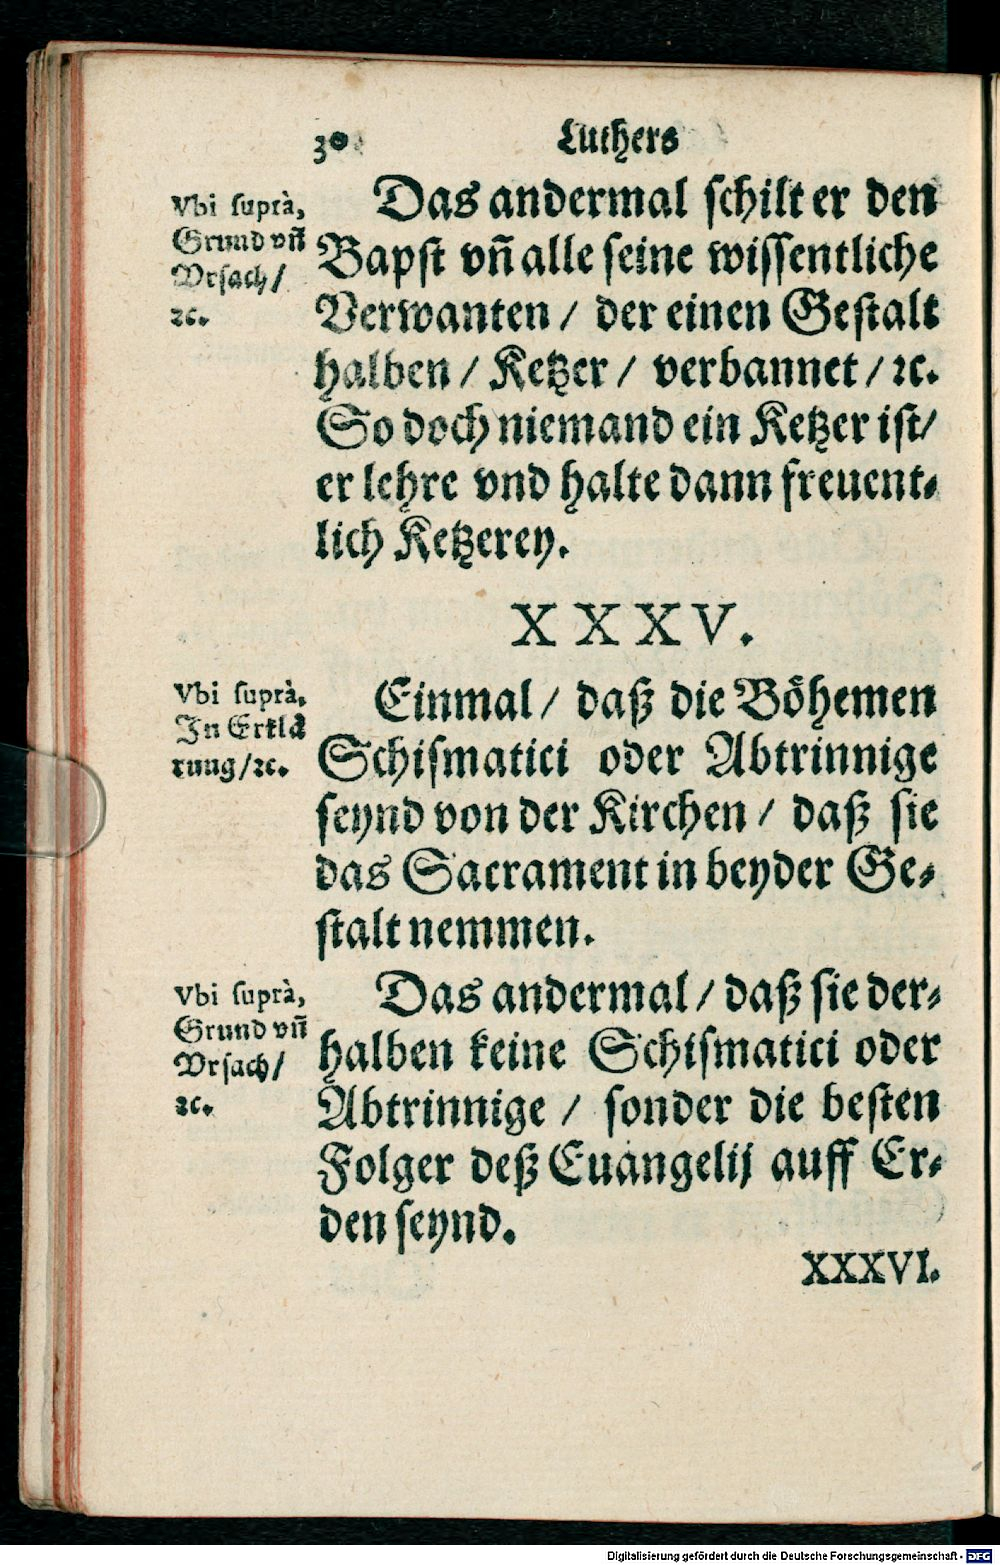 30 Luthers
Vbi suprà,
Grund vñ
Vrsach/
ꝛc.
Das andermal schilt er den
Bapst vñ alle seine wissentliche
Verwanten / der einen Gestalt
halben / Ketzer / verbannet / ꝛc.
So doch niemand ein Ketzer ist/
er lehre vnd halte dann freuent-
lich Ketzerey.
XXXV.
Vbi suprà,
In Erklä
rung/ꝛc.
Einmal / daß die Böhemen
Schismatici oder Abtrinnige
seynd von der Kirchen / daß sie
das Sacrament in beyder Ge-
stalt nemmen.
Vbi suprà,
Grund vñ
Vrsach/
ꝛc.
Das andermal / daß sie der-
halben keine Schismatici oder
Abtrinnige / sonder die besten
Folger deß Euangelij auff Er-
den seynd.
XXXVI.
Digitalisierung gefördert durch die Deutsche Forschungsgemeinschaft - DFG